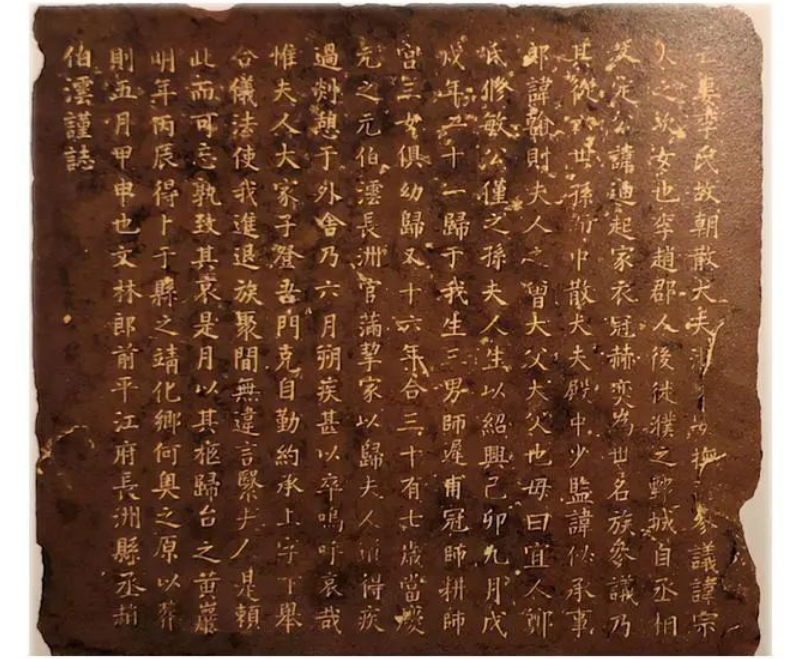 李氏故朝散大夫撫參議諱宗
久之次女也李趙郡人後徙濮之鄄城自丞相
文定公諱迪起家衣冠赫奕為世名族參議乃
其從世孫中散大夫殿中少監諱似承事
郎諱翰則夫人之曾大父大父也母曰宜人鄭
氏修敏公僅之孫夫人生以紹興己卯九月戊
戌年二十一歸于我生三男師遲甫冠師耕師
宮三女俱幼歸又十六年合三十有七歲當慶
元之元伯澐長洲官滿挈家以歸夫人道得疾
過剡憩于外舍乃六月朔疾甚以卒嗚呼哀哉
惟夫人大家子登吾門克自勤約承上字下舉
合儀法使我進退族聚間無違言繄夫人是賴
此而可忘孰致其哀是月以其柩歸台之黃巖
明年丙辰得卜于縣之靖化鄉何奧之原以葬
則五月甲申也文林郎前平江府長洲縣丞趙
伯澐謹誌